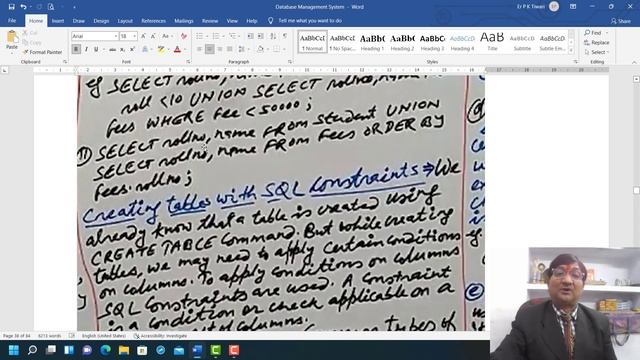 Database Management System - Word
Er P K Tiwari
File Home Insert Draw Design Layout References Mailings Review View Help Tell me what you want to do
Share
Cut
Copy
Paste
Format Painter
Clipboard
Font
Paragraph
Styles
Editing
AaBbCcDc AaBbCcDc AaBbC AaBbCc AaBbC AaBbCcD AaB AaBbCcD AaBbCcDc
¶ Normal ¶ No Spac... Heading 1 Heading 2 Heading 3 Heading 4 Title Subtitle Subtle Em...
Find
Replace
Select
eg SELECT rollno,
roll <10 UNION SELECT rollno,
fees WHERE Fee < 50000;
(11) SELECT rollno, name FROM Student UNION
SELECT rollno, name FROM Fees ORDER BY
fees.rollno;
Creating tables with SQL Constraints ⇒ We
already know that a table is created using
CREATE TABLE Command. But while creating
tables, we may need to apply certain conditions
on columns. To apply conditions on columns
SQL Constraints are used. A Constraint
is a condition or check applicable on a
set of columns.
types of
Page 38 of 84 6213 words English (United States) Accessibility: Investigate